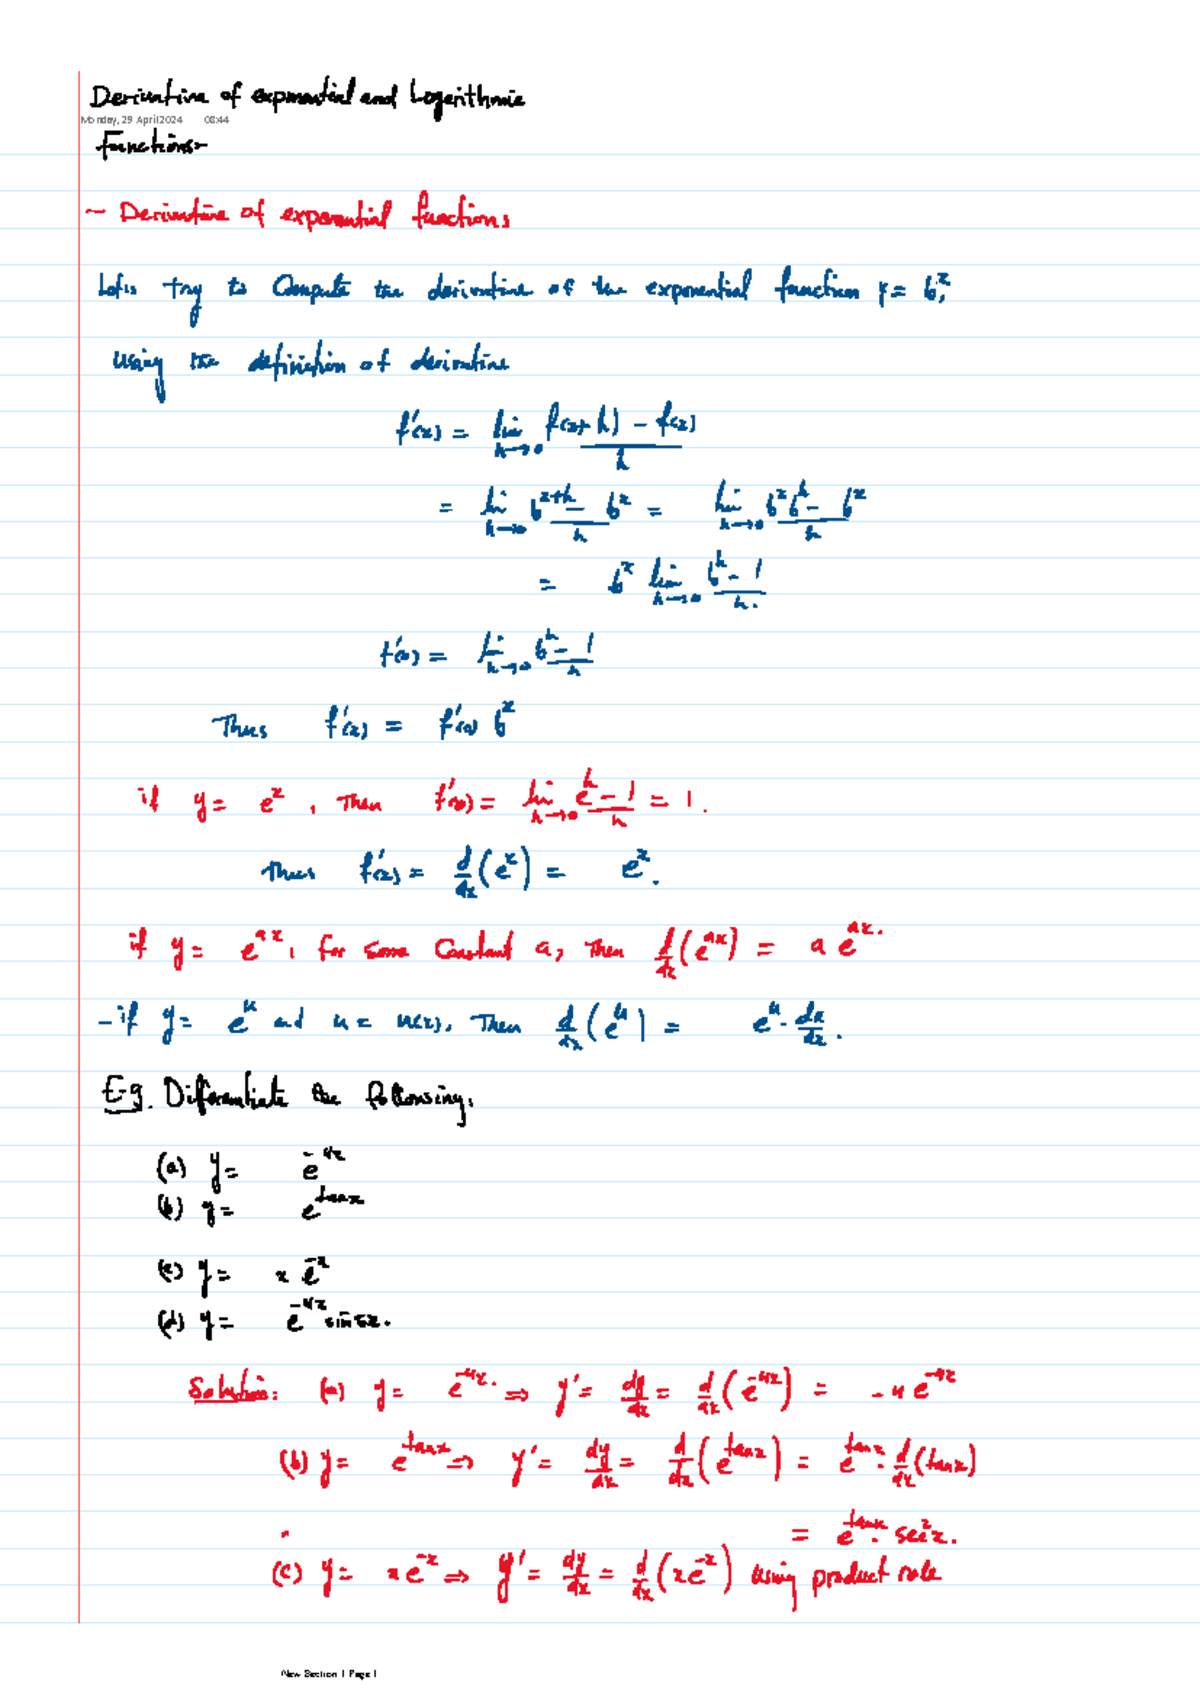 Derivative of exponential and Logarithmic
Monday, 29 April 2024 08:44
Functions
~ Derivative of exponential functions
Let's try to Compute the derivative of the exponential function y = b^x,
using the definition of derivative
f'(x) = lim_{h→0} (f(x+h) - f(x))/h
= lim_{h→0} (b^{x+h} - b^x)/h = lim_{h→0} (b^x b^h - b^x)/h
= b^x lim_{h→0} (b^h - 1)/h.
f'(0) = lim_{h→0} (b^h - 1)/h
Thus f'(x) = f'(0) b^x
if y = e^x, Then f'(0) = lim_{h→0} (e^h - 1)/h = 1.
Thus f'(x) = d/dx (e^x) = e^x.
if y = e^{ax}, for some Constant a, Then d/dx (e^{ax}) = a e^{ax}.
- if y = e^u and u = u(x), Then d/dx (e^u) = e^u · du/dx.
E-g. Differentiate the following:
(a) y = e^{-4x}
(b) y = e^{tanx}
(c) y = x e^{-x}
(d) y = e^{-4x} sin5x.
Solution: (a) y = e^{-4x}. ⇒ y' = dy/dx = d/dx (e^{-4x}) = -4 e^{-4x}
(b) y = e^{tanx} ⇒ y' = dy/dx = d/dx (e^{tanx}) = e^{tanx} · d/dx (tanx)
= e^{tanx} · sec^2 x.
(c) y = x e^{-x} ⇒ y' = dy/dx = d/dx (x e^{-x}) using product rule
New Section 1 Page 1